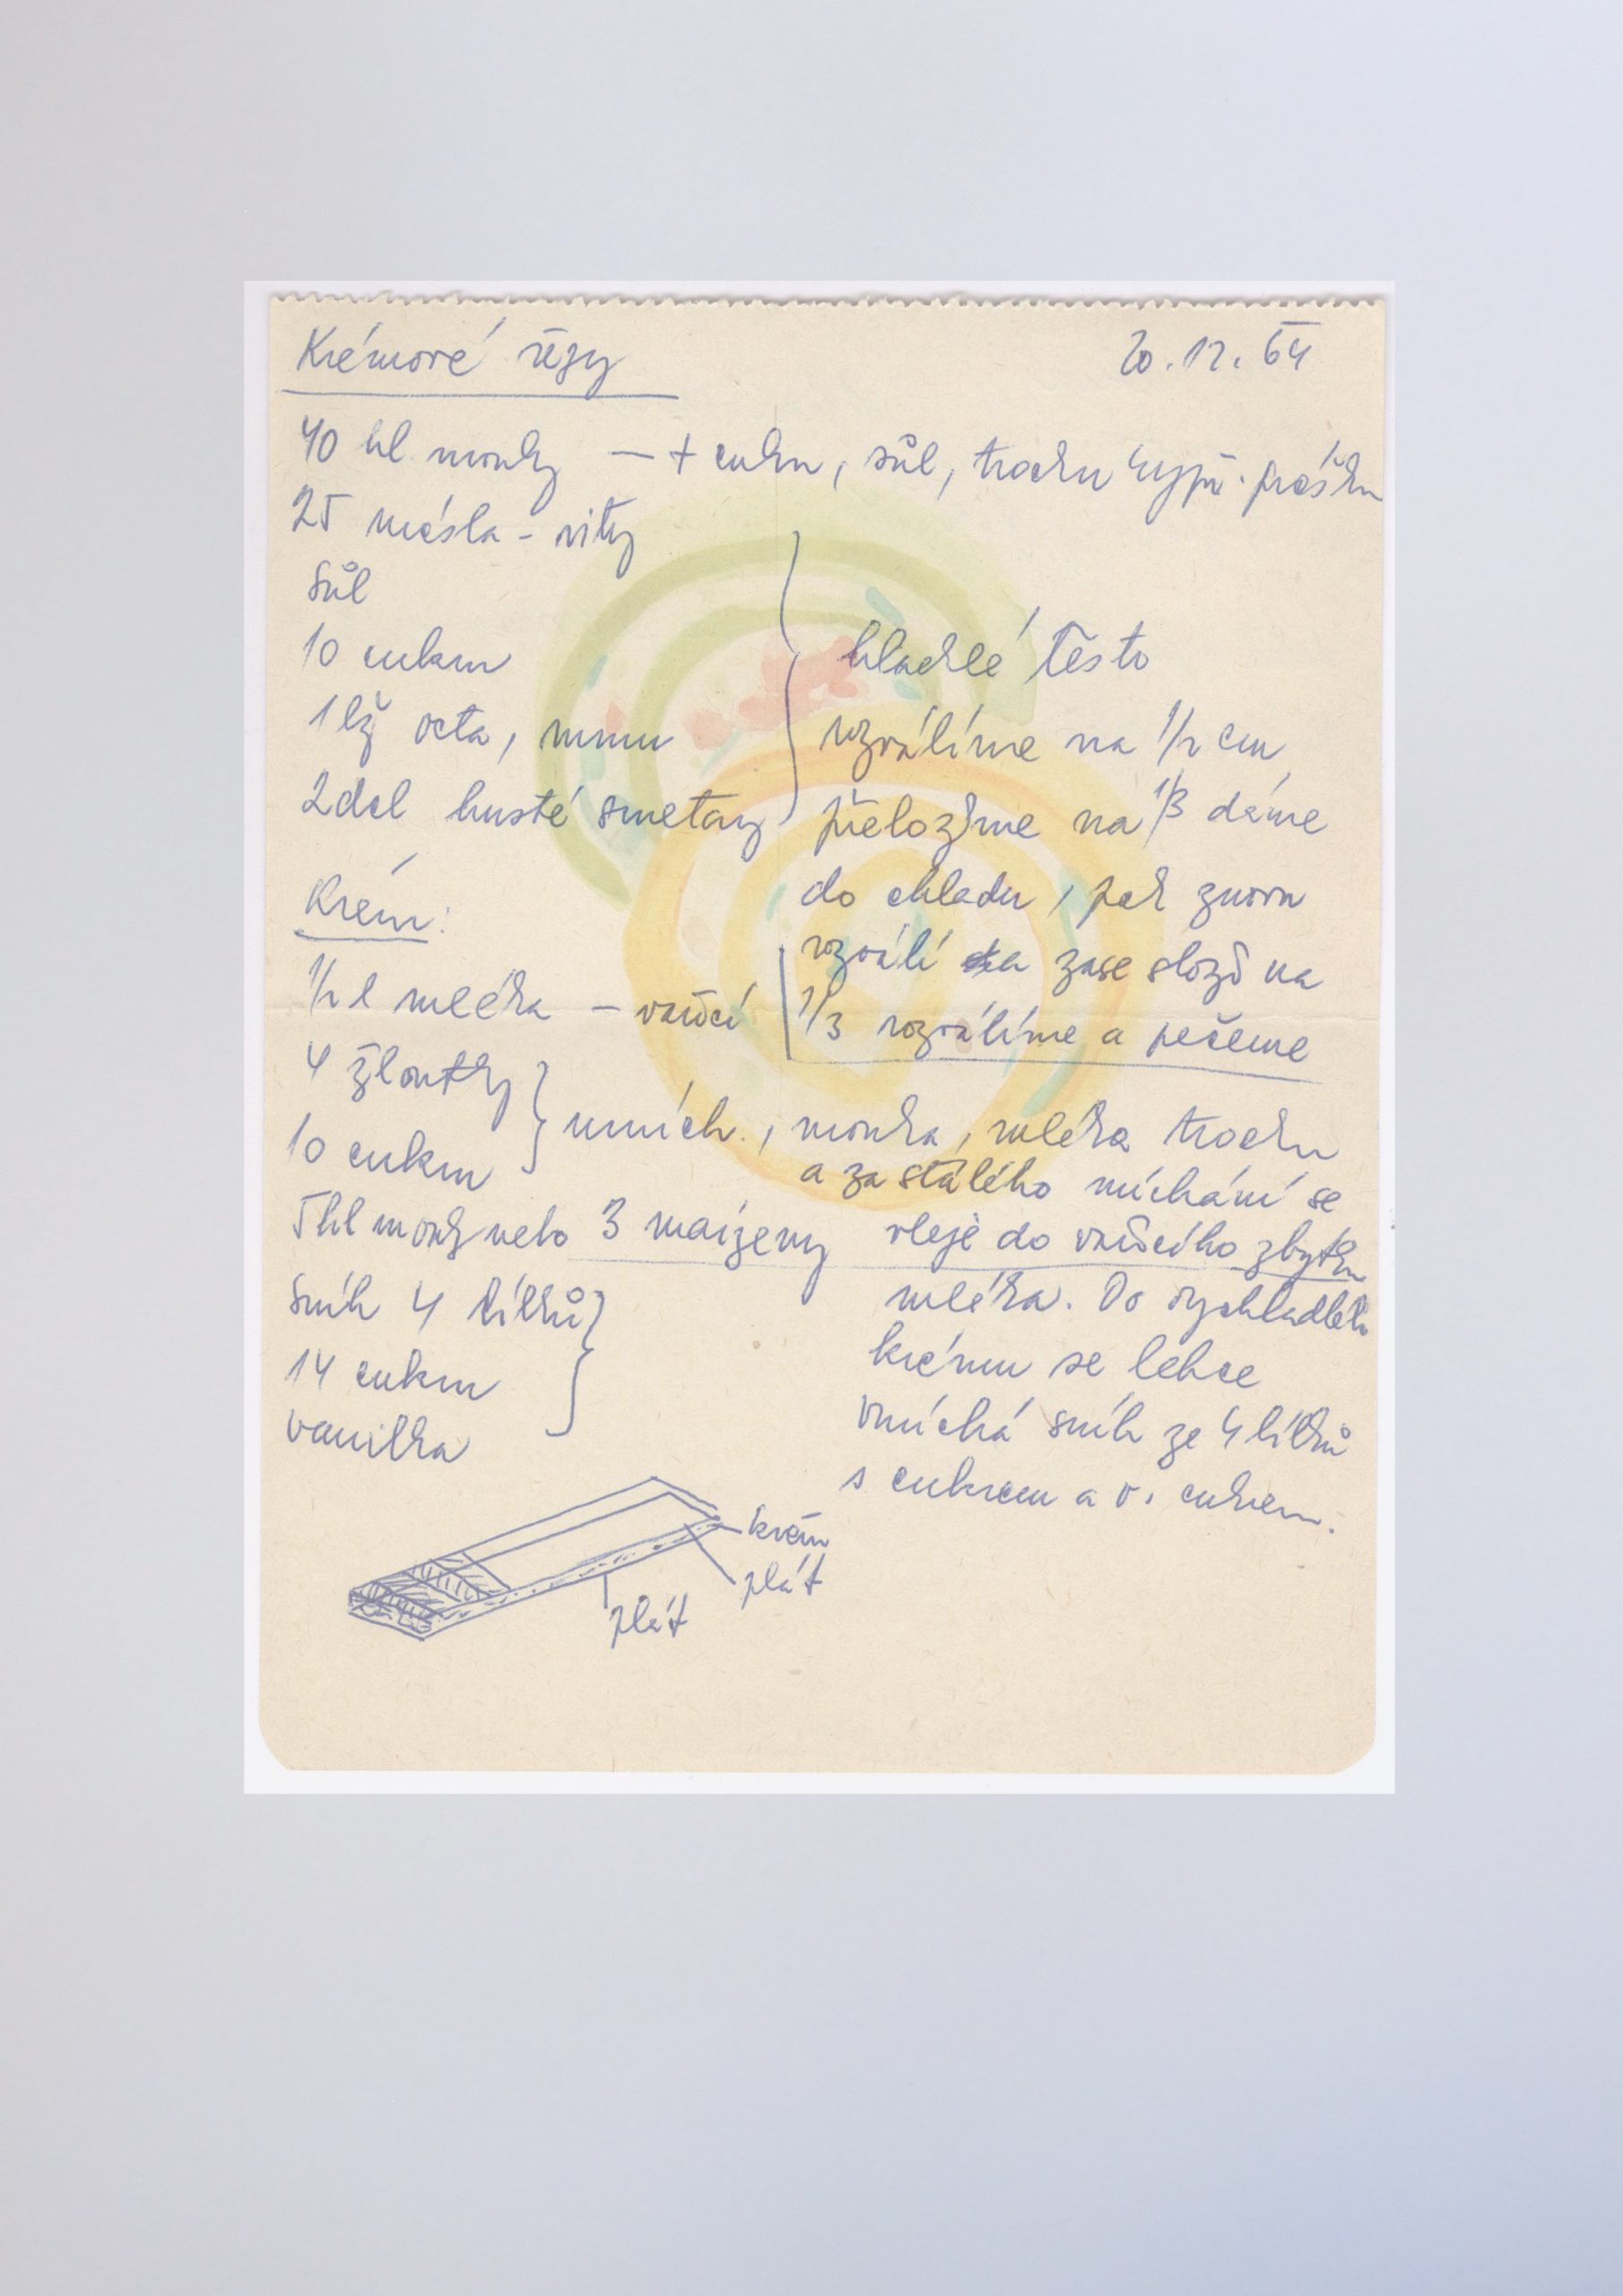 Krémové řezy
20.12.64
40 hl mouky — + cukru, sůl, trochu kypř. prášku
25 másla - vity
Sůl
10 cukru
1 lž octa, rumu
2 del husté smetany
hladké těsto
rozválíme na 1/2 cm
přeložíme na 1/3 dáme
do chladu, pak znovu
rozválí a zase složí na
1/3 rozválíme a pečeme
Krém:
1/2 l mléka — vařící
4 žloutky
10 cukru
umích., mouka, mléka trochu
a za stálého míchání se
5 hl mouky nebo 3 maizeny
vleje do vařícího zbytku
mléka. Do vychladlého
krému se lehce
vmíchá sníh ze 4 bílků
s cukrem a v. cukrem.
Sníh 4 bílků
14 cukru
vanilka
krém
plát
plát